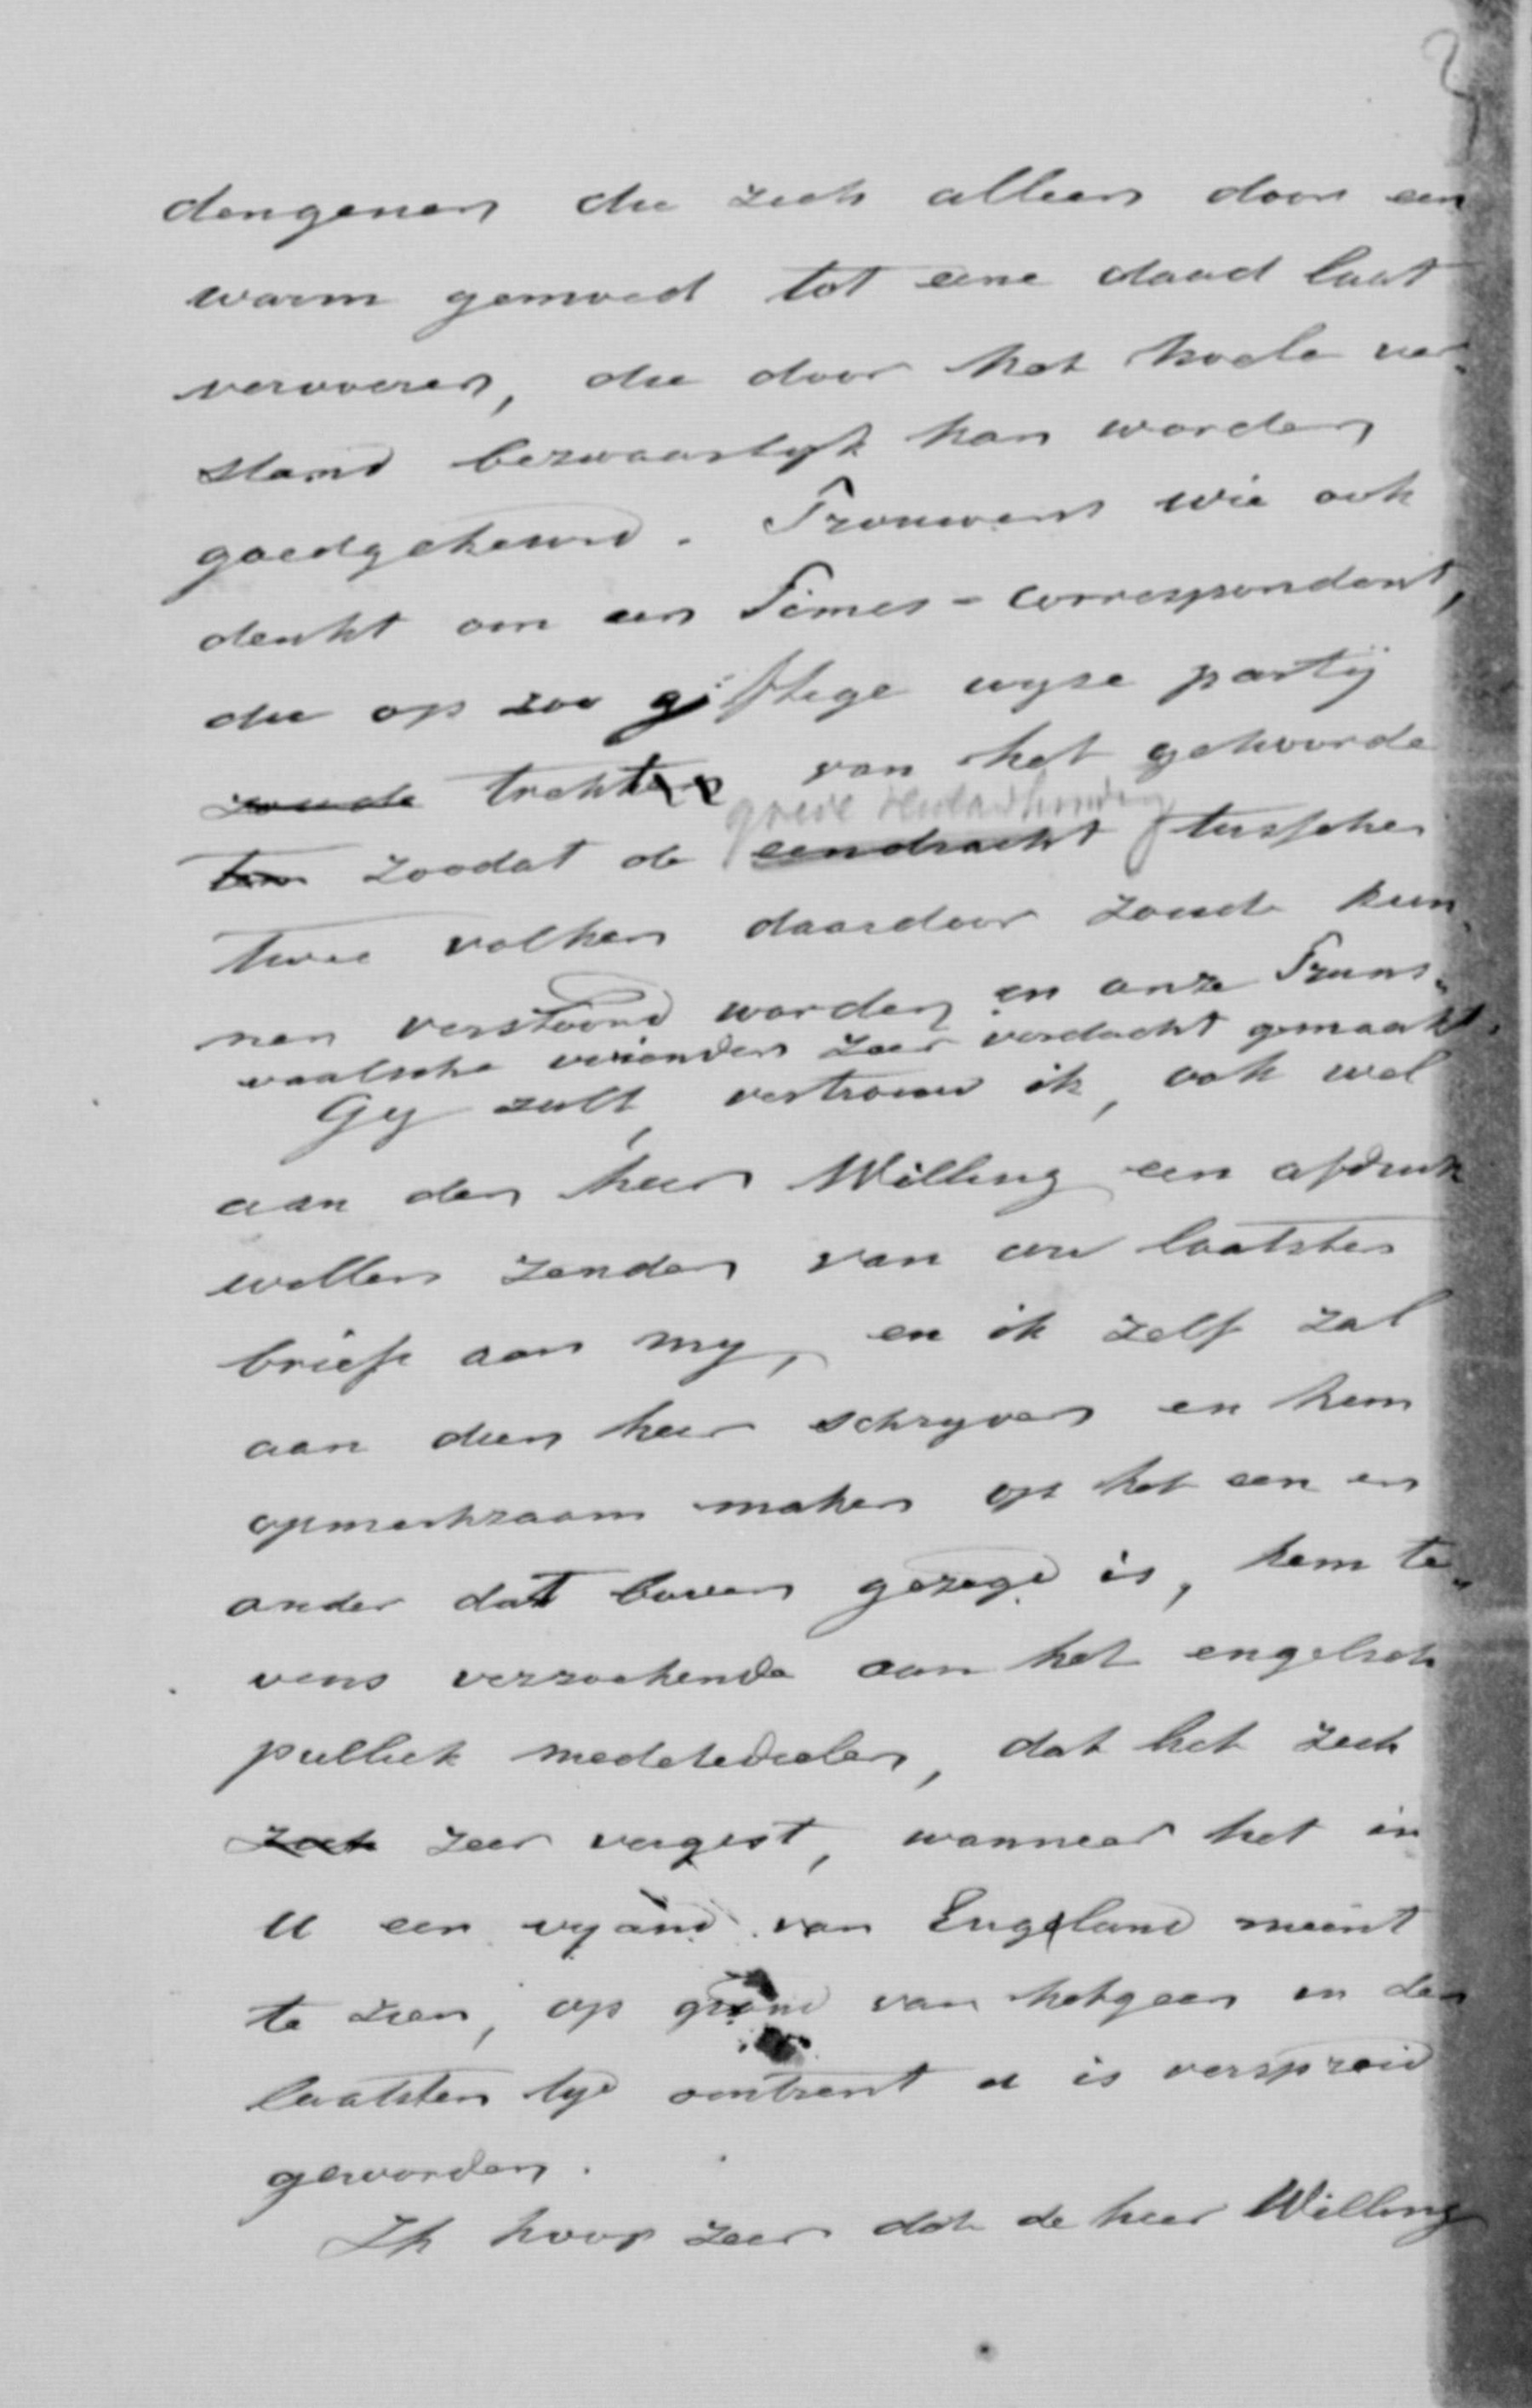 3
dengenen die zich alleen door een
warm gemoed tot eene daad laat
vervoeren, die door het koele ver-
stand bezwaarlijk kan worden
goedgekeurd. Trouwens wie ook
denkt om een Times-correspondent,
die op zoo giftige wyze partij
zoude trekken van het gehoorde
goede verstandhouding
ten zoodat de eendracht tusschen
twee volken daardoor zoude kun-
nen verstoord worden en onze Trans-
vaalsche vrienden zeer verdacht gemaakt.
Gy zult, vertrouw ik, ook wel
aan den heer Willing een afdruk
willen zenden van uw laatsten
brief aan my, en ik zelf zal
aan dien heer schryven en hem
opmerkzaam maken op het een en
ander dat boven gezegd is, hem te-
vens verzoekende aan het engelsch
publiek medetedeelen, dat het zich
zich zeer vergist, wanneer het in
u een vyand van Engeland meent
te zien, op grond van hetgeen in den
laatsten tyd omtrent u is verspreid
geworden.
Ik hoop zeer dat de heer Willing